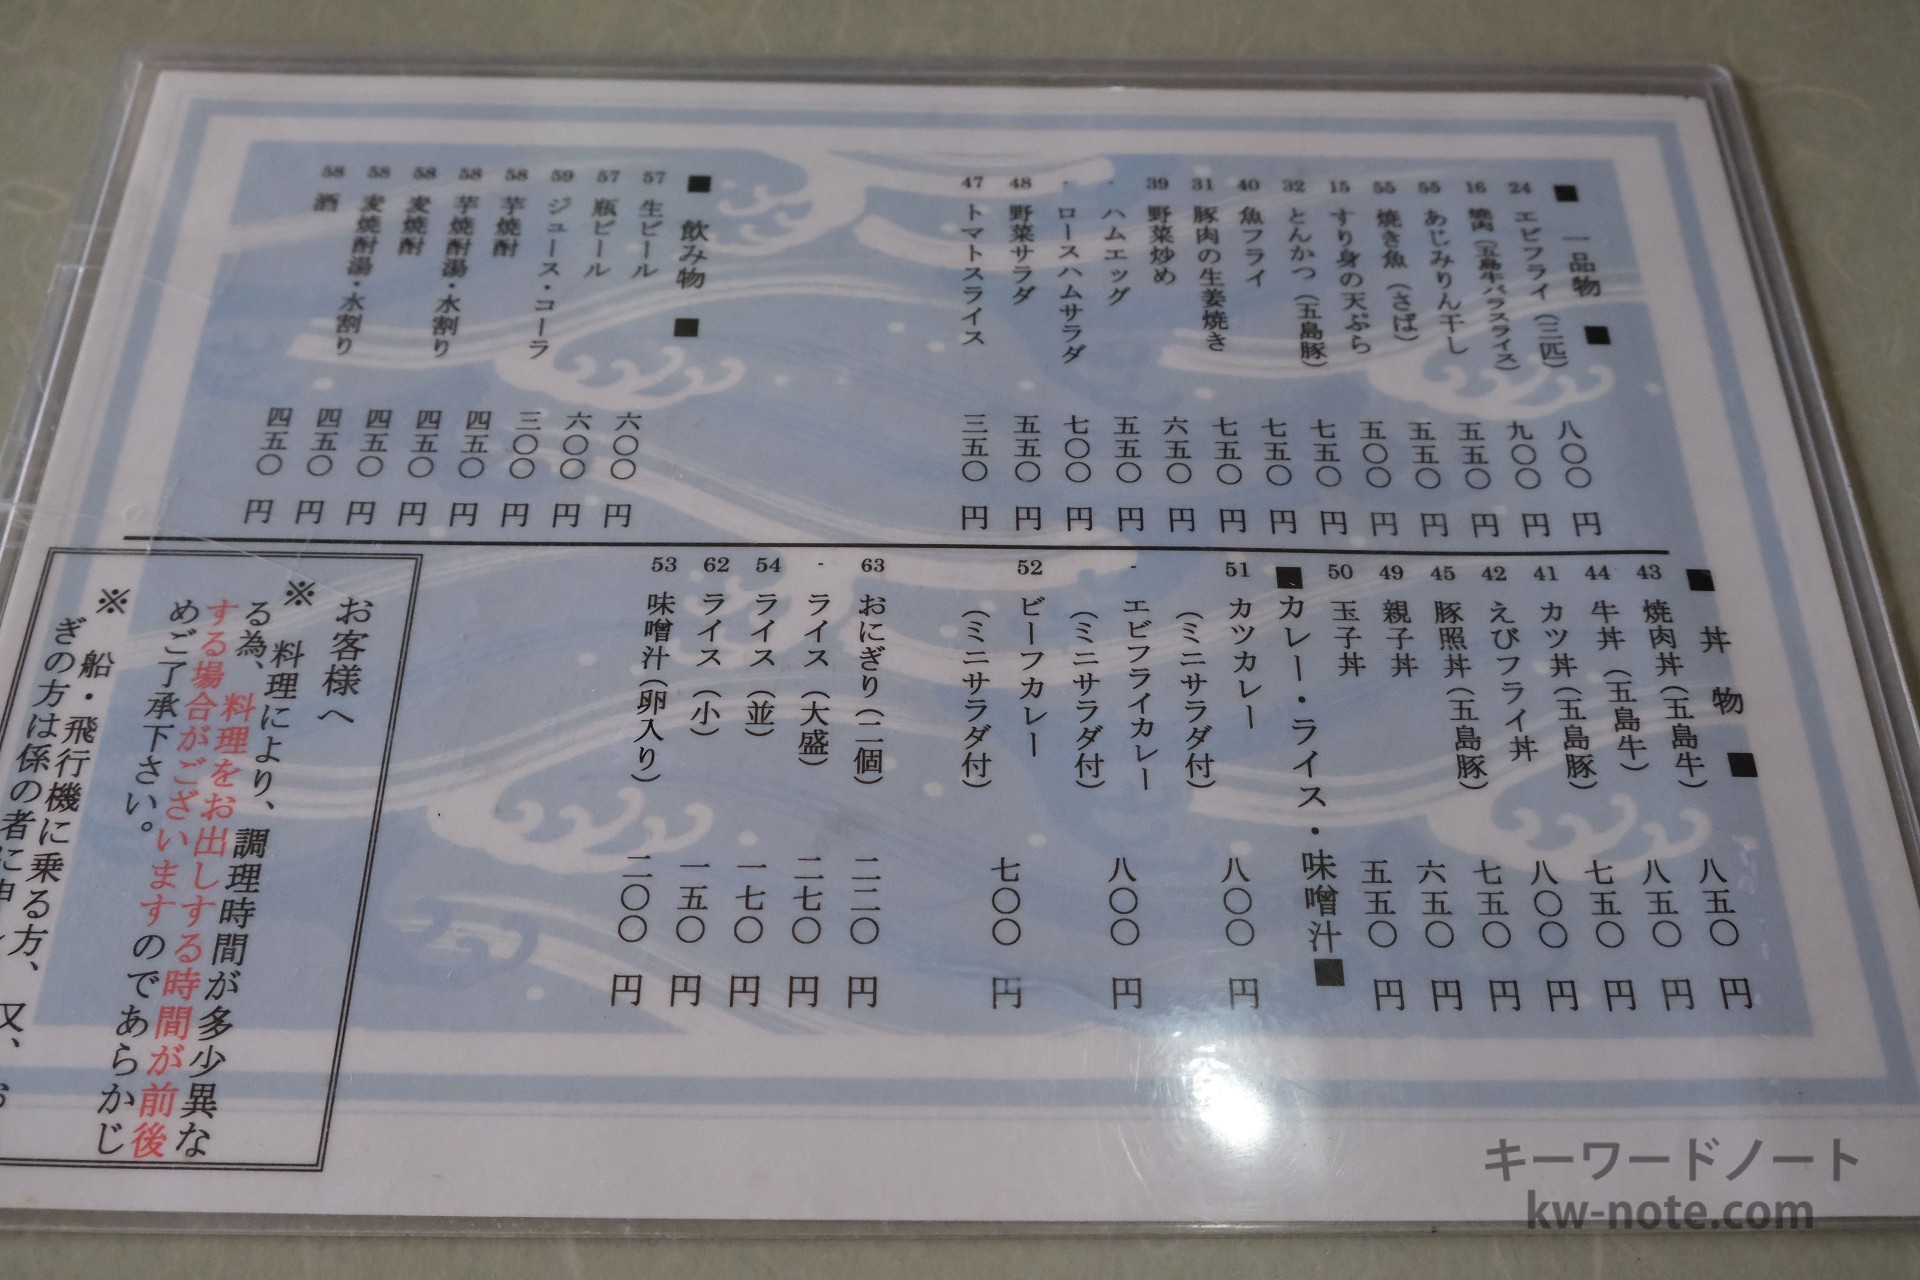 ■ 一品物 ■
24 エビフライ(三匹) 八〇〇円
16 焼肉(五島牛バラスライス) 九〇〇円
55 あじみりん干し 五五〇円
55 焼き魚(さば) 五五〇円
15 すり身の天ぷら 五〇〇円
32 とんかつ(五島豚) 七五〇円
40 魚フライ 七五〇円
31 豚肉の生姜焼き 七五〇円
39 野菜炒め 六五〇円
- ハムエッグ 五五〇円
- ロースハムサラダ 七〇〇円
48 野菜サラダ 五五〇円
47 トマトスライス 三五〇円
■ 飲み物 ■
57 生ビール 六〇〇円
57 瓶ビール 六〇〇円
59 ジュース・コーラ 三〇〇円
58 芋焼酎 四五〇円
58 芋焼酎湯・水割り 四五〇円
58 麦焼酎 四五〇円
58 麦焼酎湯・水割り 四五〇円
58 酒 四五〇円
■ 丼物 ■
43 焼肉丼(五島牛) 八五〇円
44 牛丼(五島牛) 八五〇円
41 カツ丼(五島豚) 七五〇円
42 えびフライ丼 八〇〇円
45 豚照丼(五島豚) 七五〇円
49 親子丼 六五〇円
50 玉子丼 五五〇円
■カレー・ライス・味噌汁■
51 カツカレー 八〇〇円
(ミニサラダ付)
- エビフライカレー 八〇〇円
(ミニサラダ付)
52 ビーフカレー 七〇〇円
(ミニサラダ付)
63 おにぎり(二個) 二二〇円
- ライス(大盛) 二七〇円
54 ライス(並) 一七〇円
62 ライス(小) 一五〇円
53 味噌汁(卵入り) 二〇〇円
お客様へ
※ 料理により、調理時間が多少異な
る為、料理をお出しする時間が前後
する場合がございますのであらかじ
めご了承下さい。
※ 船・飛行機に乗る方、又、お
ぎの方は係の者に申し
キーワードノート
kw-note.com